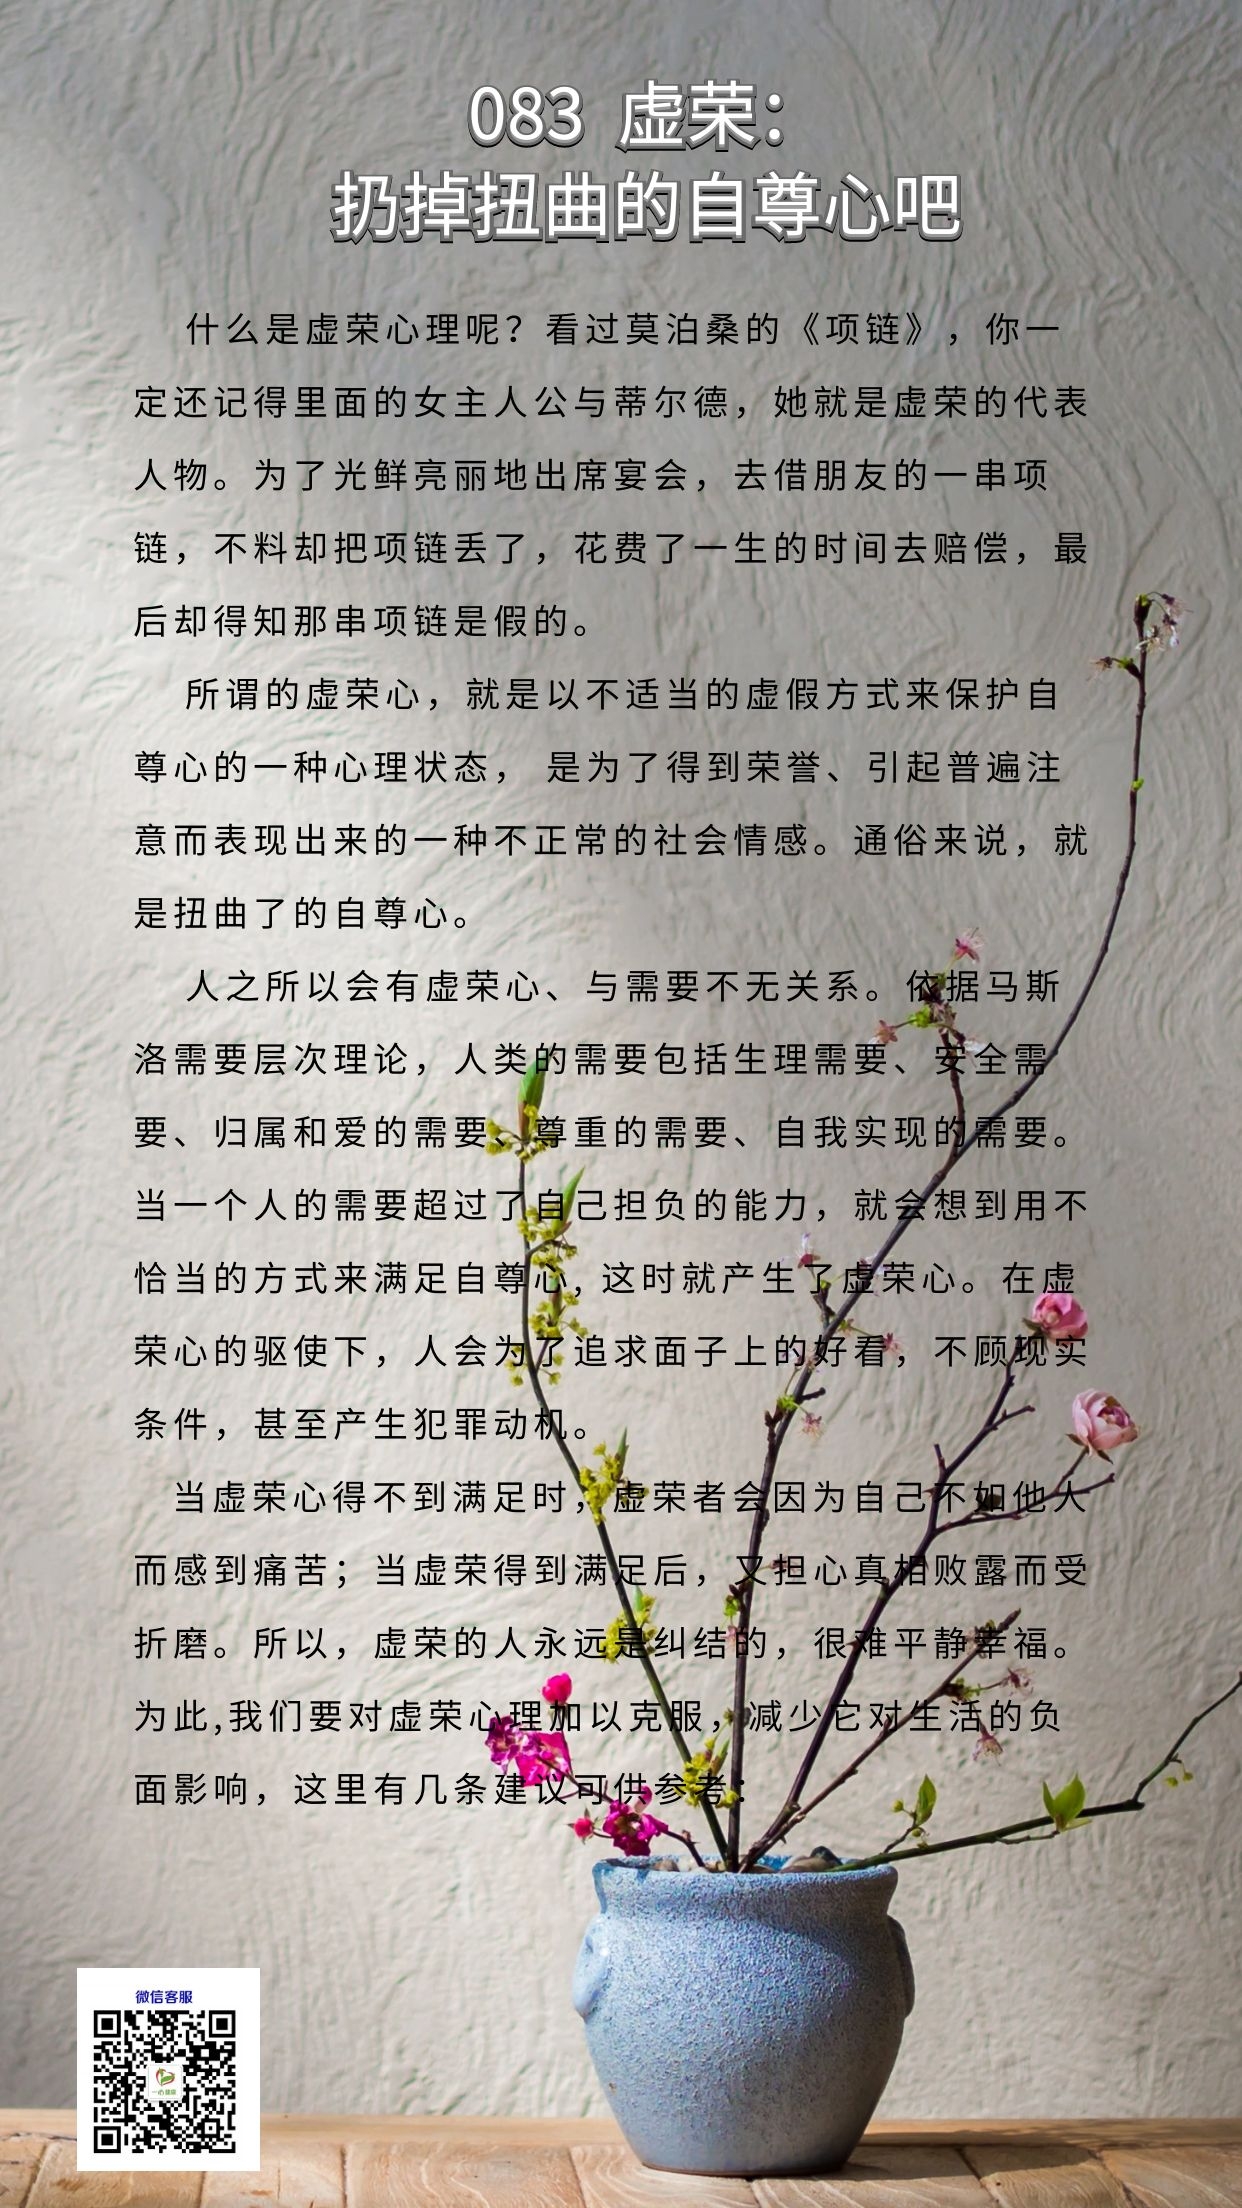 083 虚荣：
扔掉扭曲的自尊心吧
什么是虚荣心理呢？看过莫泊桑的《项链》，你一
定还记得里面的女主人公与蒂尔德，她就是虚荣的代表
人物。为了光鲜亮丽地出席宴会，去借朋友的一串项
链，不料却把项链丢了，花费了一生的时间去赔偿，最
后却得知那串项链是假的。
所谓的虚荣心，就是以不适当的虚假方式来保护自
尊心的一种心理状态， 是为了得到荣誉、引起普遍注
意而表现出来的一种不正常的社会情感。通俗来说，就
是扭曲了的自尊心。
人之所以会有虚荣心、与需要不无关系。依据马斯
洛需要层次理论，人类的需要包括生理需要、安全需
要、归属和爱的需要、尊重的需要、自我实现的需要。
当一个人的需要超过了自己担负的能力，就会想到用不
恰当的方式来满足自尊心, 这时就产生了虚荣心。在虚
荣心的驱使下，人会为了追求面子上的好看，不顾现实
条件，甚至产生犯罪动机。
当虚荣心得不到满足时，虚荣者会因为自己不如他人
而感到痛苦；当虚荣得到满足后，又担心真相败露而受
折磨。所以，虚荣的人永远是纠结的，很难平静幸福。
为此,我们要对虚荣心理加以克服，减少它对生活的负
面影响，这里有几条建议可供参考：
微信客服
一心健康